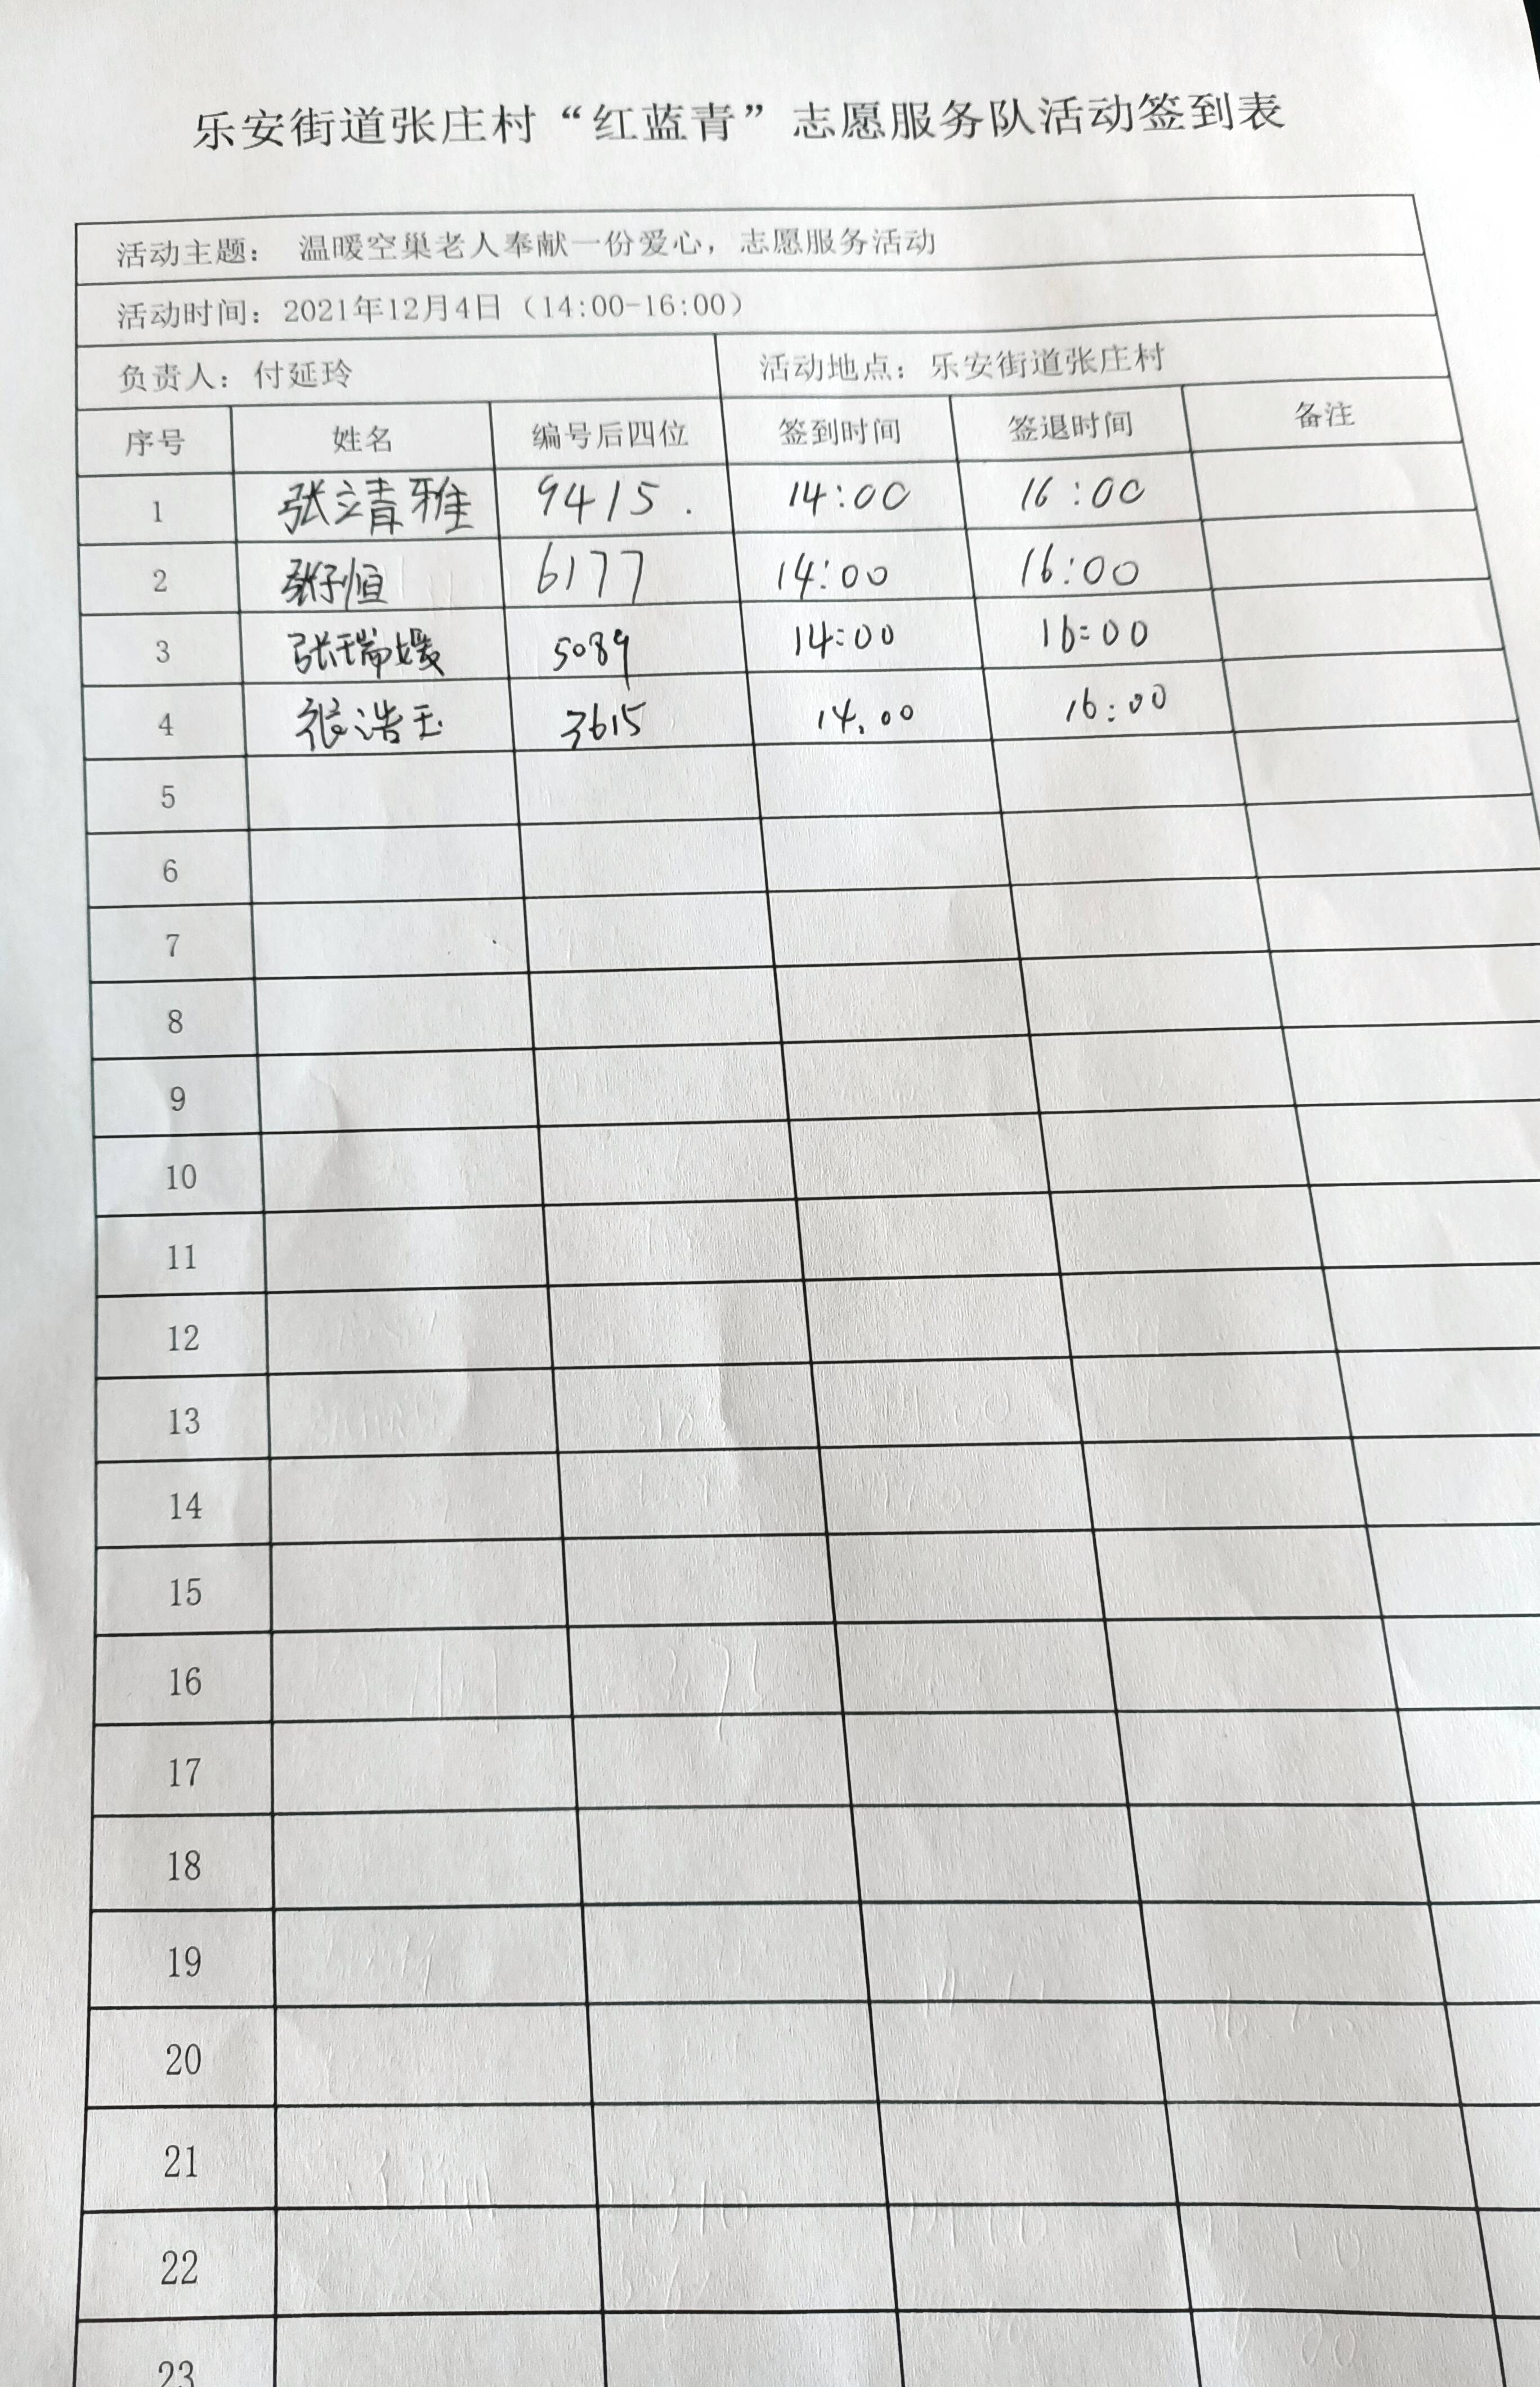 乐安街道张庄村“红蓝青”志愿服务队活动签到表
活动主题： 温暖空巢老人奉献一份爱心，志愿服务活动
活动时间：2021年12月4日（14:00-16:00）
负责人：付延玲 活动地点：乐安街道张庄村
序号 姓名 编号后四位 签到时间 签退时间 备注
1 张靖雅 9415. 14:00 16:00
2 张子恒 6177 14:00 16:00
3 张瑞媛 5089 14:00 16:00
4 张浩玉 3615 14.00 16:00
5
6
7
8
9
10
11
12
13
14
15
16
17
18
19
20
21
22
23